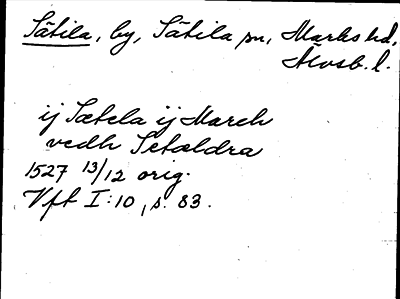 Sätila, by, Sätila sn, Marks hd,
Älvsb. l.
ij Sætela ij March
vedh Setaldra
1527 13/12 orig.
Vft I:10, s. 83.